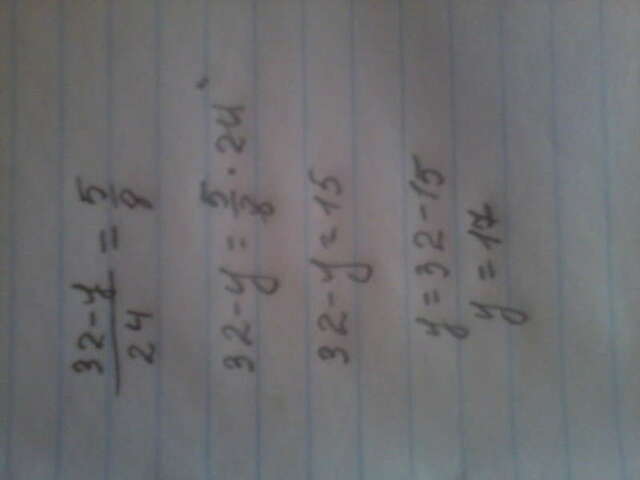 32-y/24 = 5/8
32-y = 5/8 · 24
32-y = 15
y = 32-15
y = 17